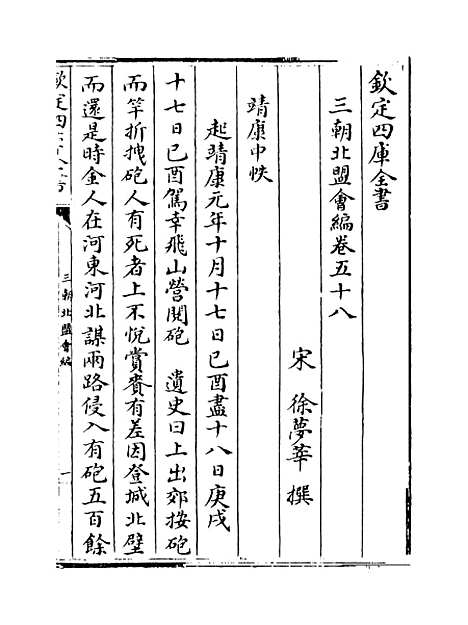 欽定四庫全書
三朝北盟會編卷五十八
宋 徐夢莘 撰
靖康中帙
起靖康元年十月十七日己酉盡十八日庚戌
十七日己酉駕幸飛山營閱砲 遺史曰上出郊按砲
而竿折拽砲人有死者上不悅賞賚有差因登城北壁
而還是時金人在河東河北謀兩路侵入有砲五百餘
欽定四庫全書
三朝北盟會編
一